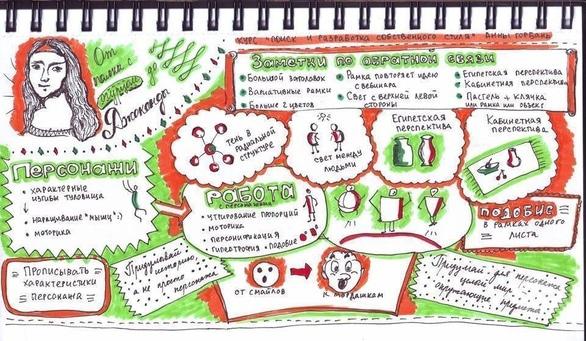 КУРС "ПОИСК И РАЗРАБОТКА СОБСТВЕННОГО СТИЛЯ" АННЫ ГОРБАНЬ
От
палки с
огурцом
до
Джоконды
Заметки по обратной связи
Большой заголовок
Вариативные рамки
Больше 2 цветов
Рамка повторяет идею
с вебинара
Свет с верхней левой
стороны
Египетская перспектива
Кабинетная перспектива
Пастель + клячка
или рамка или объект
тень в
радиальной
структуре
свет между
людьми
Египетская
перспектива
Кабинетная
перспектива
Персонажи
характерные
изгибы туловища
нащупывание "мышц" :)
моторика
Работа
с персонажем
утрирование пропорций
моторика
персонификация
гипертрофия + подобие
подобие
в рамках одного
листа
Прописывать
характеристики
персонажа
Придумывай
историю,
а не просто
персонажа
от смайлов
к мордашкам
Придумай для персонажа
целый мир -
окружающие предметы